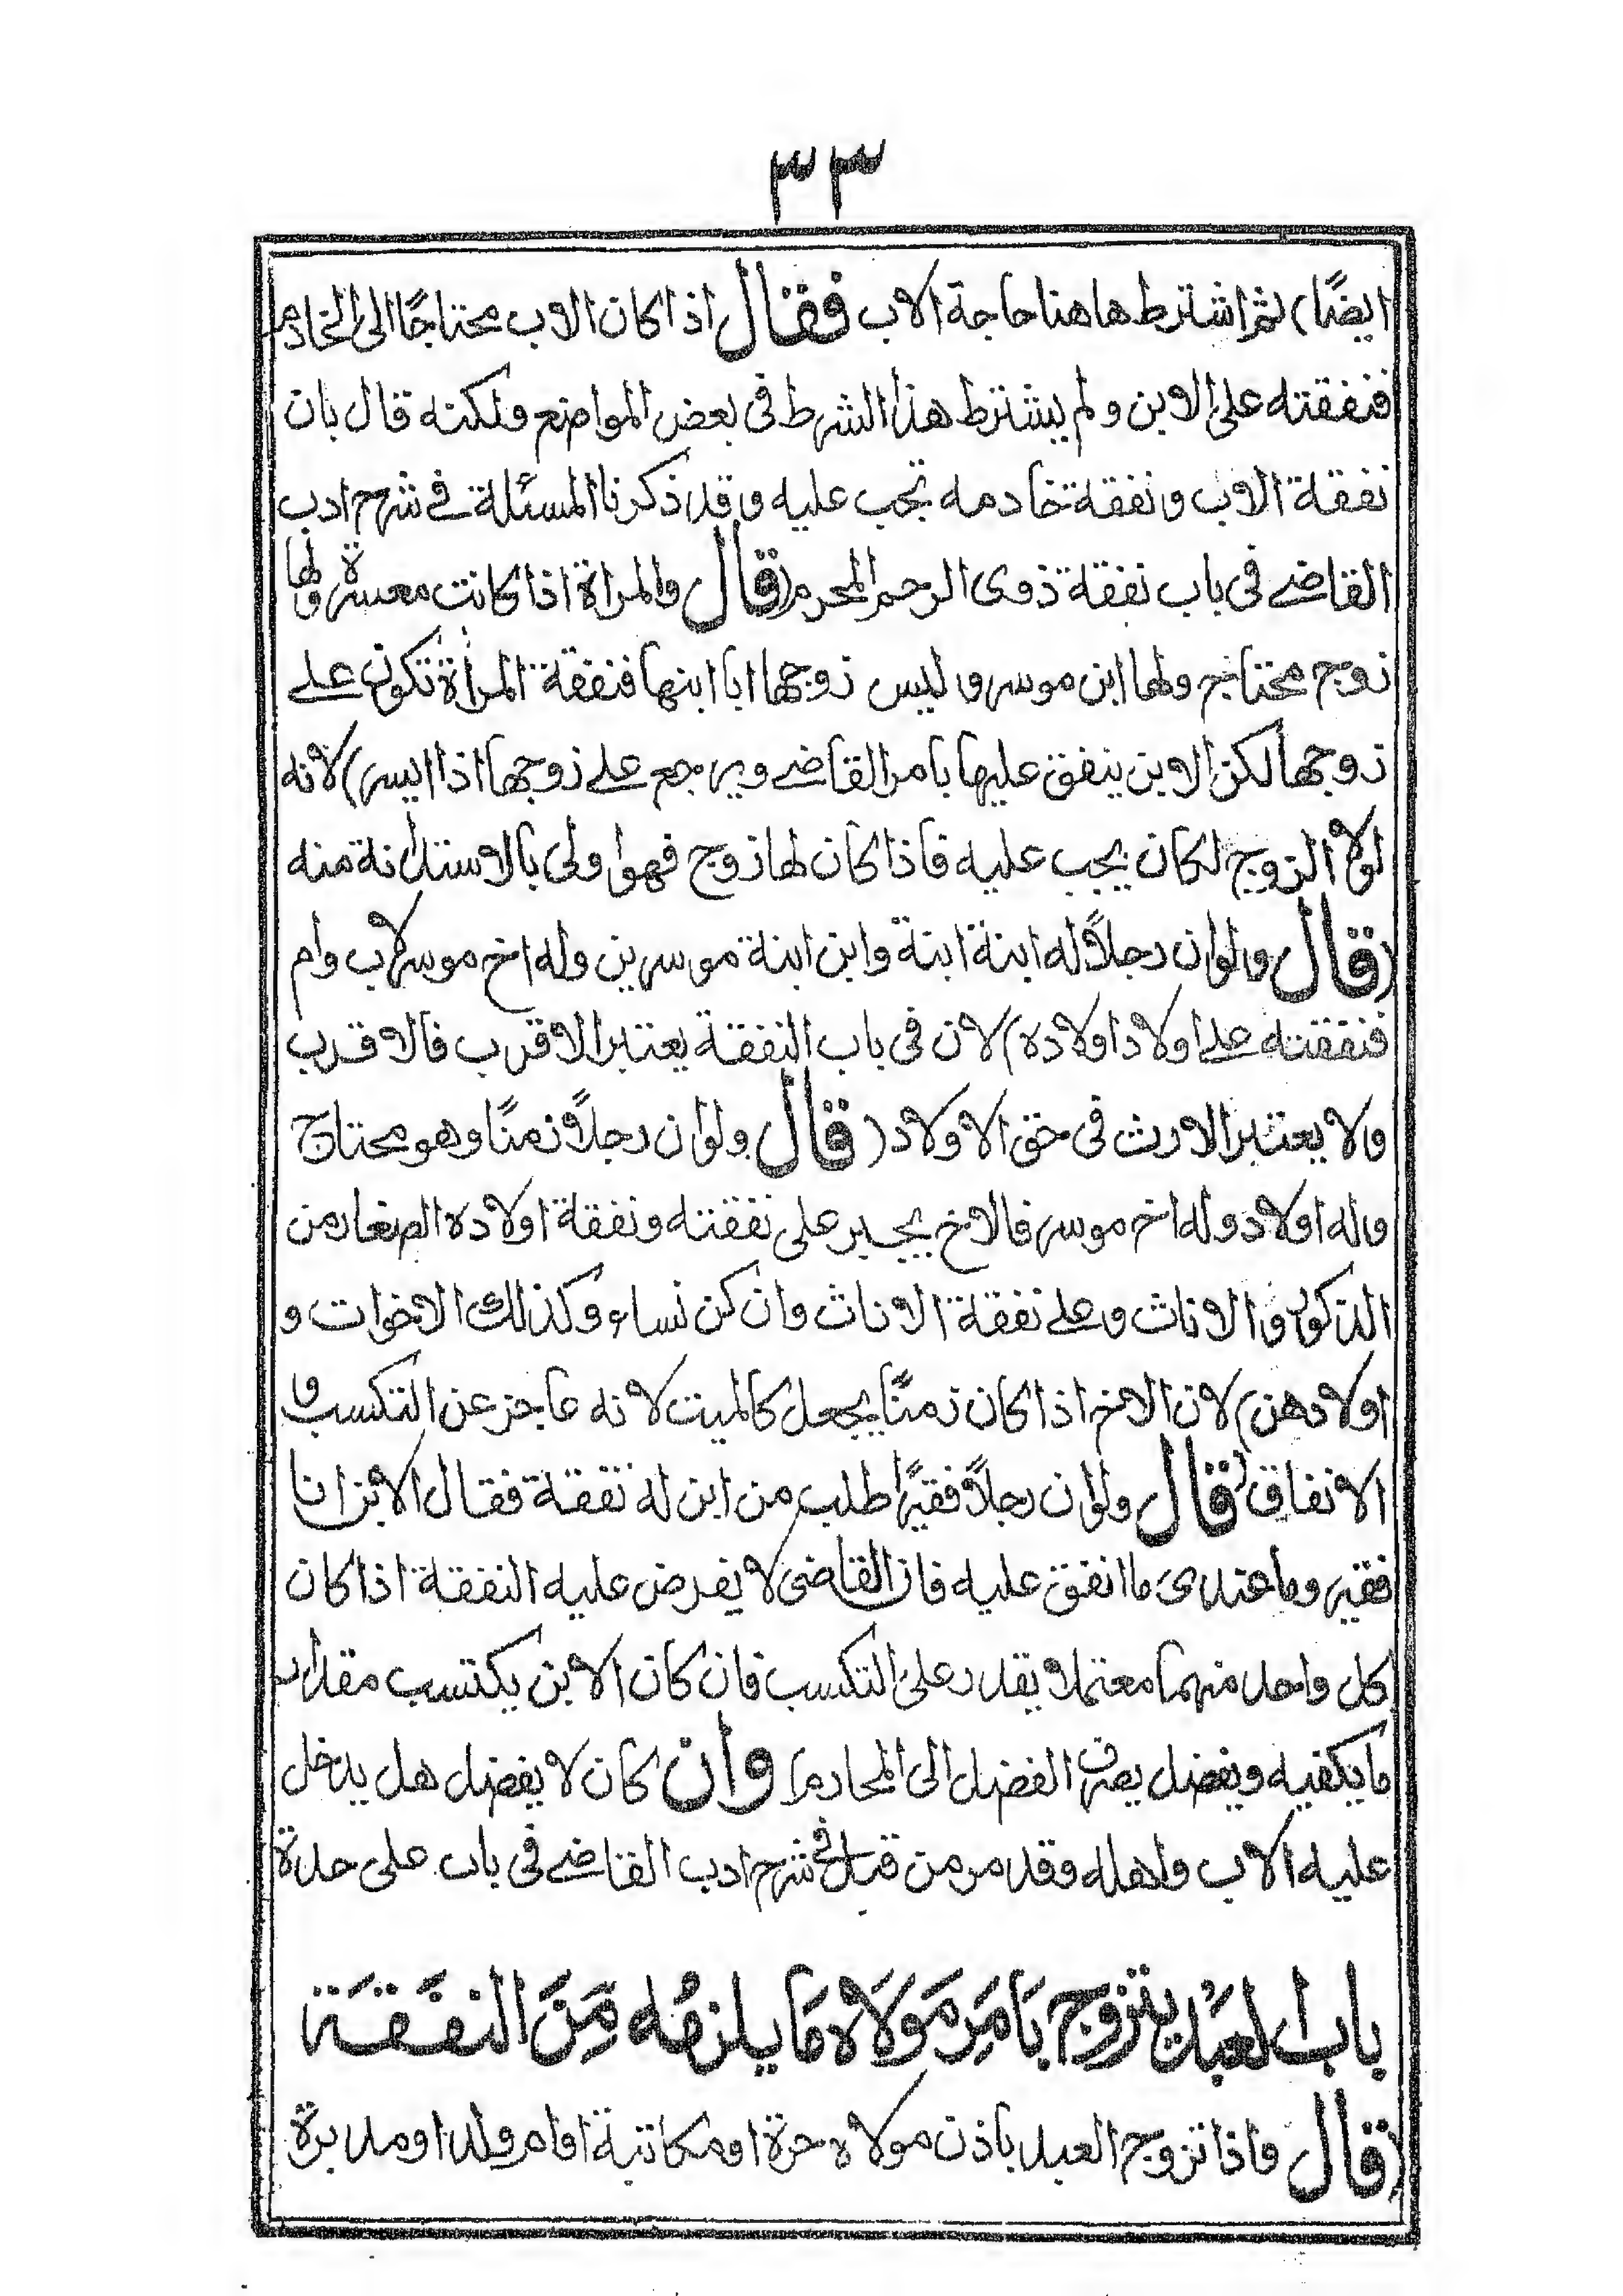 ٣٣
ايضًا) ثم اشترط هاهنا حاجة الاب فقال اذا كان الاب محتاجًا الى الخادم
فنفقته على الابن ولم يشترط هذا الشرط فى بعض المواضع ولكنه قال بان
نفقة الاب ونفقة خادمه تجب عليه وقد ذكرنا المسئلة في شرح ادب
القاضے فى باب نفقة ذوى الرحم المحرم (قال والمراة اذا كانت معسرة ولها
زوج محتاج ولها ابن موسر وليس زوجها ابا ابنها فنفقة المرأة تكون علے
زوجها لكن الابن ينفق عليها بامر القاضے ويرجع علے زوجها اذا ايسر) لانه
لولا الزوج لكان يجب عليه فاذا كان لها زوج فهو اولى بالاستدانة منه
(قال ولو ان رجلاً له ابنة ابنة وابن ابنة موسرين وله اخ موسر لاب وام
فنفقته علے اولاد اولاده) لان فى باب النفقة يعتبر الاقرب فالاقرب
ولا يعتبر الارث فى حق الاولاد (قال ولو ان رجلاً زمنًا وهو محتاج
وله اولاد وله اخ موسر فالاخ يجبر على نفقته ونفقة اولاده الصغار من
الذكور والاناث وعلے نفقة الاناث وان كن نساء وكذلك الاخوات و
اولادهن) لان الاخ اذا كان زمنًا يجعل كالميت لانه عاجز عن التكسب و
الانفاق (قال ولو ان رجلاً فقيرًا طلب من ابن له نفقة فقال الابن انا
فقير وما عندى ما انفق عليه فان القاضى لا يفرض عليه النفقة اذا كان
كل واحد منهما معتملا يقدر على التكسب فان كان الابن يكتسب مقدار
ما يكفيه ويفضل يصرف الفضل الى المحارم) وان كان لا يفضل هل يدخل
عليه الاب ولهله وقد مر من قبل فى شرح ادب القاضے فى باب على حدة
باب العَبْد يتزوج بَامَرِ مَوْلَاه مَا يلزمُه مِنَ النفَقَة
(قال واذا تزوج العبد باذن مولاه حرة او مكاتبة او ام ولد او مدبرة